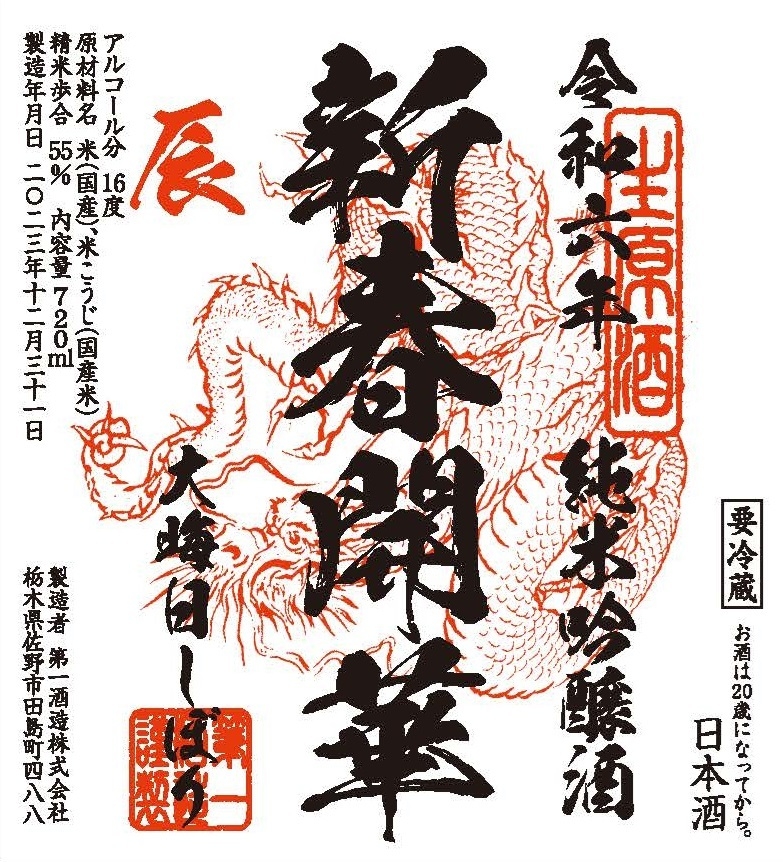 要冷蔵
お酒は20歳になってから。
日本酒
生原酒
令和六年 純米吟醸酒
新春開華
辰
大晦日しぼり
第一酒造謹製
アルコール分 16度
原材料名 米(国産)、米こうじ(国産米)
精米歩合 55% 内容量 720ml
製造年月日 二〇二三年十二月三十一日
製造者 第一酒造株式会社
栃木県佐野市田島町四八八